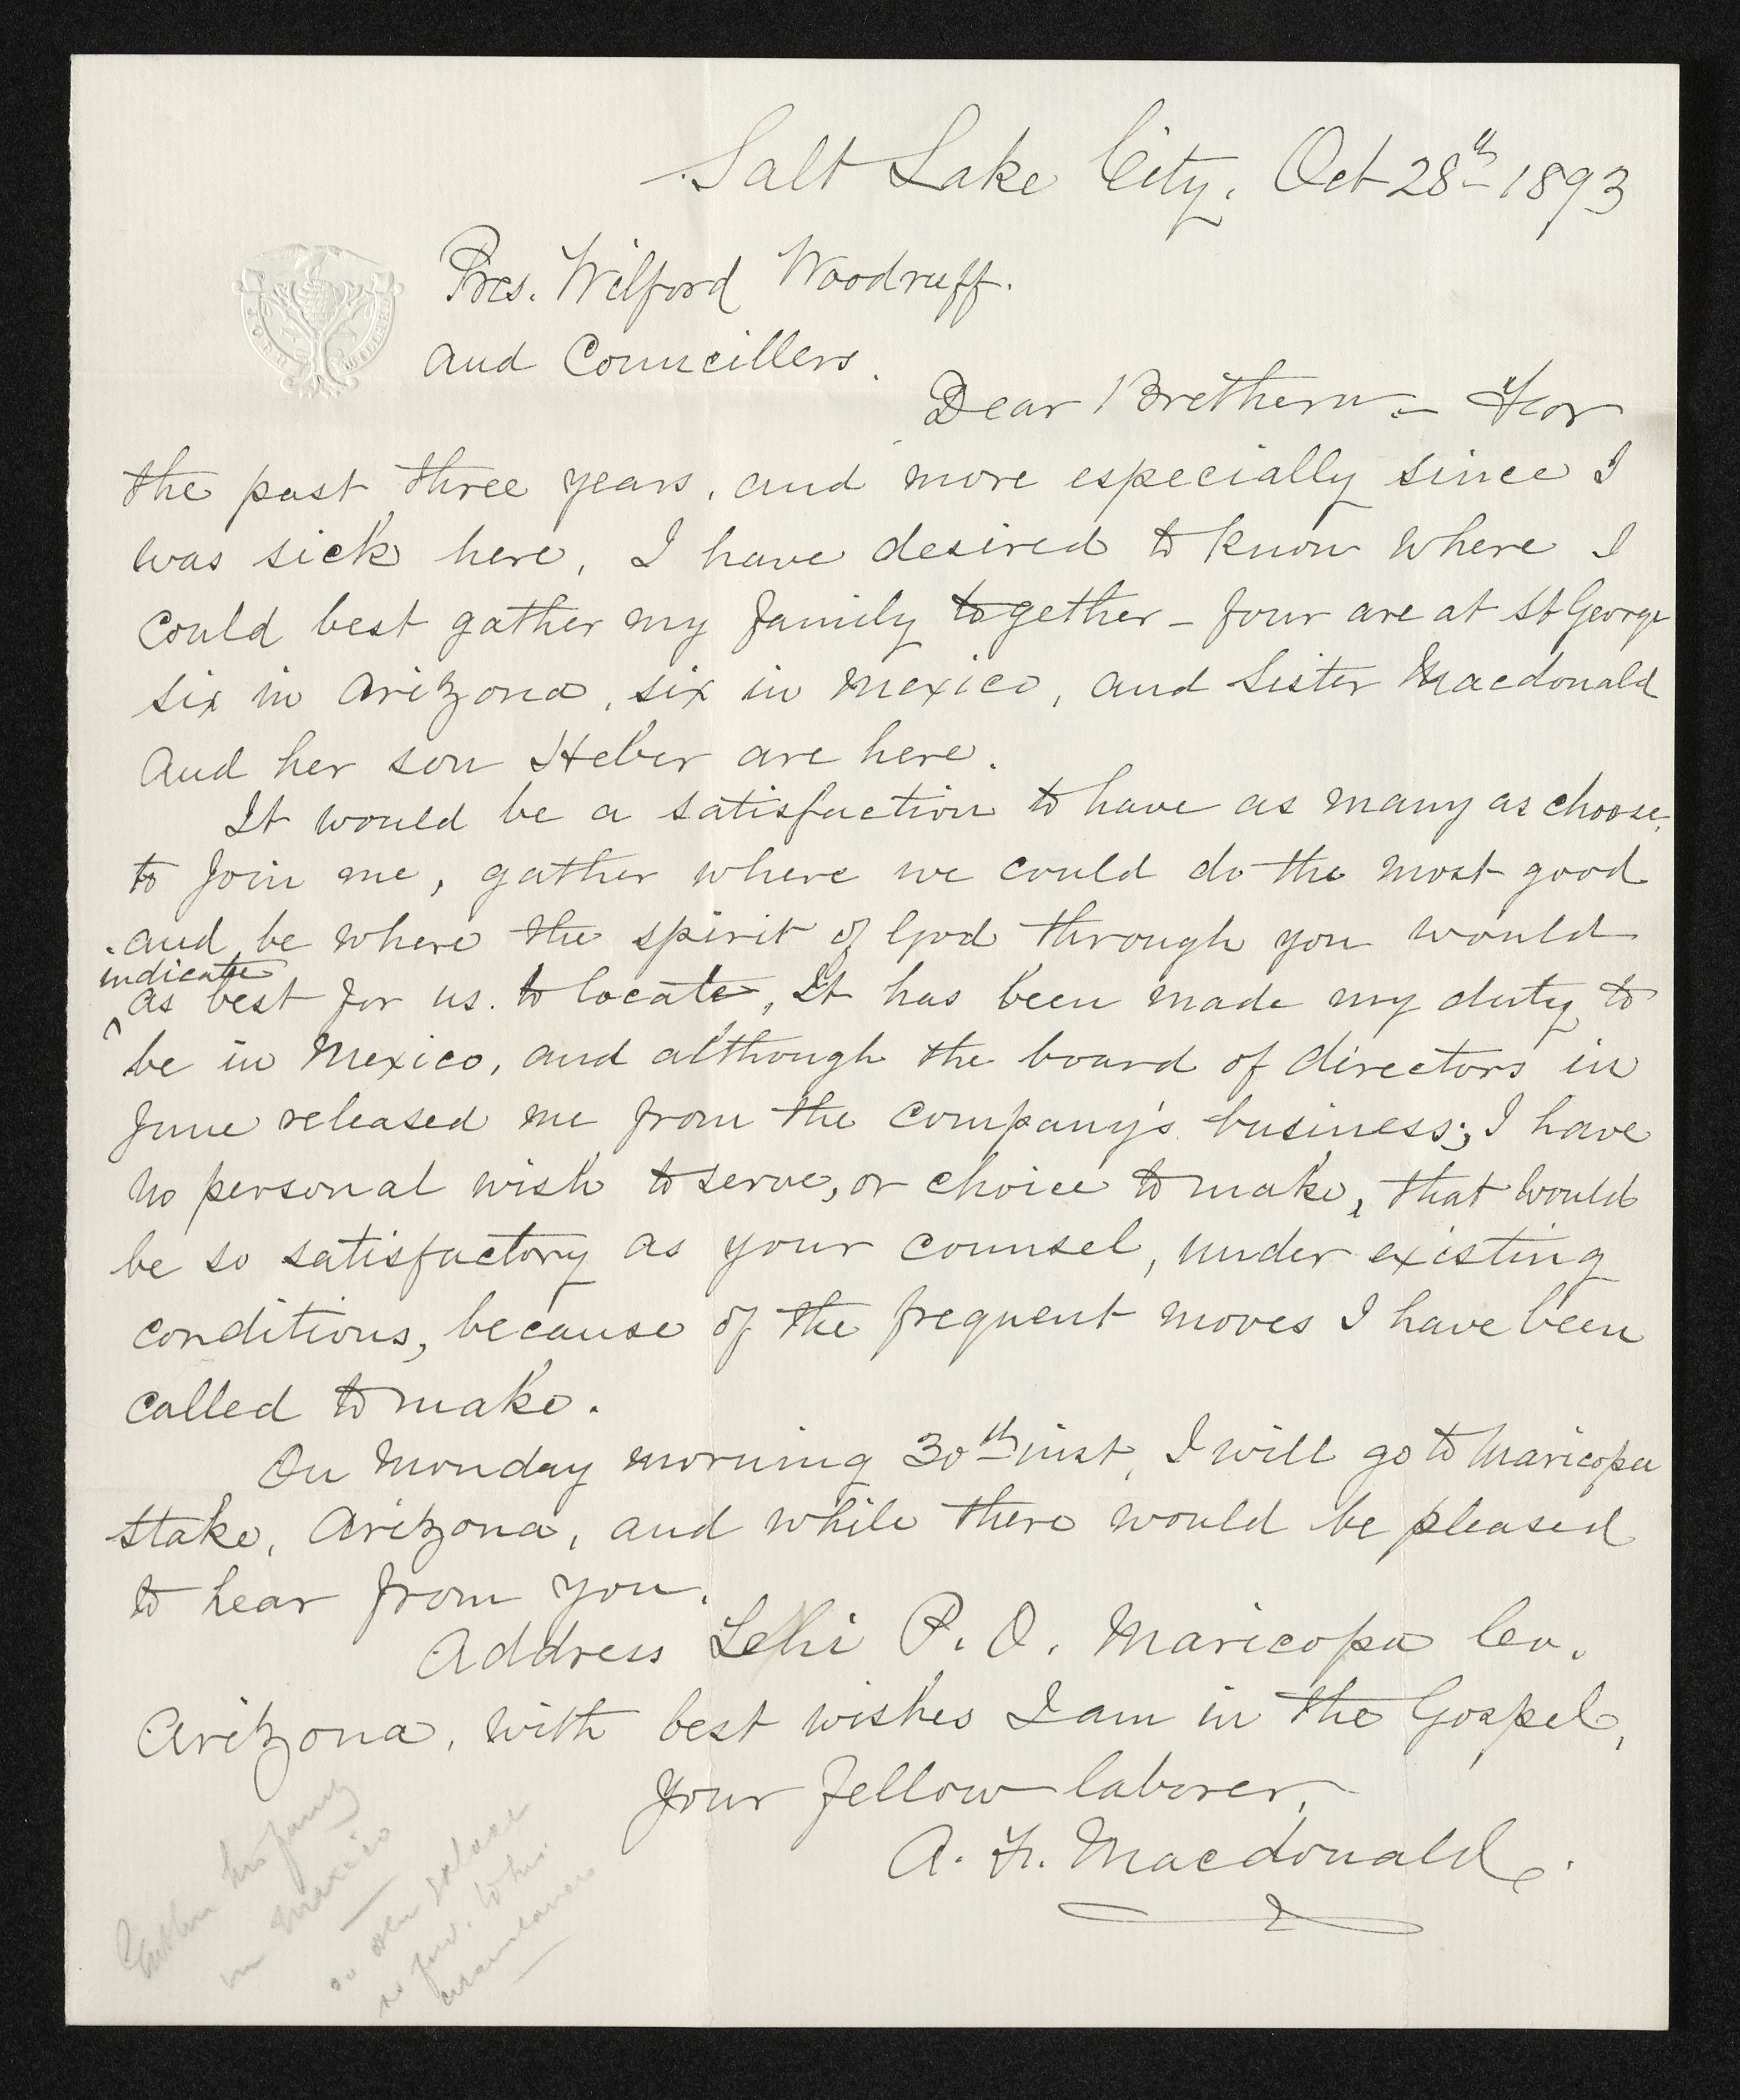 Salt Lake City, Oct 28th 1893
Pres. Wilford Woodruff.
and Councillers.
Dear Brethern - For
the past three years, and more especially since I
was sick here, I have desired to know where I
could best gather my family together - four are at St George
six in Arizona, six in Mexico, and Sister Macdonald
and her son Heber are here.
It would be a satisfaction to have as many as choose,
to join me, gather where we could do the most good
and be where the spirit of God through you would
indicate
^as best for us to locate, It has been made my duty to
be in Mexico, and although the board of directors in
June released me from the company's business; I have
no personal wish to serve, or choice to make, that would
be so satisfactory as your counsel, under existing
conditions, because of the frequent moves I have been
called to make.
On Monday morning 30th inst, I will go to Maricopa
Stake, Arizona, and while there would be pleased
to hear from you.
Address Lehi P. O. Maricopa Co.
Arizona, with best wishes I am in the Gospel,
Your fellow laborer,
A. F. Macdonald.
Gather his family
in Mexico
or other
circumstances